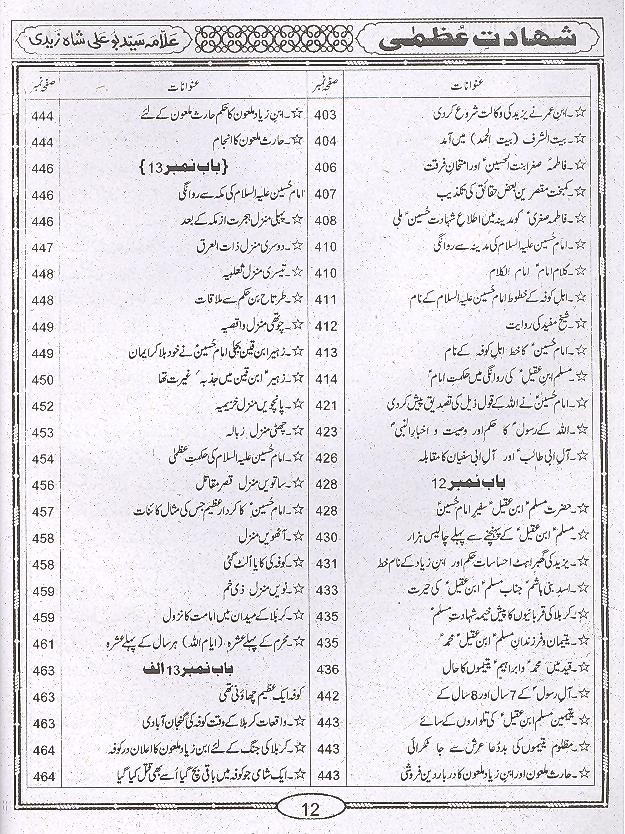 شہادتِ عُظمٰی
علامہ سید بو علی شاہ زیدی
عنوانات صفحہ نمبر
☆۔ ابن عمر نے یزید کی وکالت شروع کر دی 403
☆۔ بیت الشرف (بیت الحمد) میں آمد 404
☆۔ فاطمہؑ صغرا بنت الحسینؑ اور امتحانِ فرقت 406
☆۔ کمبخت مقصرین بعض حقائق کی تکذیب 407
☆۔ فاطمہ صغریٰؑ کو مدینہ میں اطلاع شہادت حسینؑ ملی 408
☆۔ امام حسین علیہ السلام کی مدینہ سے روانگی 410
☆۔ کلام امامؑ امام الکلام 410
☆۔ اہلِ کوفہ کے خطوط امام حسین علیہ السلام کے نام 411
☆۔ شیخ مفید کی روایت 412
☆۔ امام حسینؑ کا خط اہلِ کوفہ کے نام 413
☆۔ مسلم ابن عقیلؑ کی روانگی میں حکمتِ امامؑ 414
☆۔ امام حسینؑ نے اللہ کے قول ذیل کی تصدیق پیش کر دی 421
☆۔ اللہ کے رسولؐ کا حکم اور وصیت و اخبار النبیؐ 423
☆۔ آلِ ابی طالبؑ اور آلِ ابی سفیان کا مقابلہ 426
باب نمبر 12 428
☆۔ حضرت مسلمؑ ابن عقیلؑ سفیرِ امام حسینؑ 428
☆۔ مسلمؑ ابن عقیلؑ کے پہنچنے سے پہلے چالیس ہزار 430
☆۔ یزید کی گھبراہٹ احساسات حکم اور ابن زیاد کے نام خط 431
☆۔ اسد بنی ہاشمؑ جناب مسلمؑ ابن عقیلؑ کی حیرت 433
☆۔ کربلا کی قربانیوں کا پیش خیمہ شہادتِ مسلمؑ 435
☆۔ یتیمان و فرزندانِ مسلمؑ ابن عقیلؑ محمدؑ 435
☆۔ قید میں محمدؑ و ابراہیمؑ یتیموں کا حال 436
☆۔ آلِ رسولؐ کے 7 سال اور 8 سال کے 442
☆۔ یتیمین مسلم ابن عقیلؑ کی تلواروں کے سائے 443
☆۔ مظلوم یتیموں کی بددعا عرش سے جا ٹکرائی 443
☆۔ حارث ملعون اور ابن زیاد ملعون کا دربار دین فروشی 443
عنوانات صفحہ نمبر
☆۔ ابن زیاد ملعون کا حکم حارث ملعون کے لئے 444
☆۔ حارث ملعون کا انجام 444
{باب نمبر 13} 446
☆۔ امام حسین علیہ السلام کی مکہ سے روانگی 446
☆۔ پہلی منزل ہجرت از مکہ کے بعد 446
☆۔ دوسری منزل ذات العرق 447
☆۔ تیسری منزل ثعلبیہ 448
☆۔ طرماح بن حکم سے ملاقات 448
☆۔ چوتھی منزل واقصیہ 449
☆۔ زہیر ابن قین بجلی امام حسینؑ نے خود بلا کر ایمان 449
☆۔ زہیرؑ ابن قین میں جذبہ غیرت تھا 450
☆۔ پانچویں منزل خزیمیہ 452
☆۔ چھٹی منزل زبالہ 453
☆۔ امام حسین علیہ السلام کی حکمت عظمیٰ 454
☆۔ ساتویں منزل قصر مقاتل 456
☆۔ امام حسینؑ کا کردار عظیم جس کی مثال کائنات 457
☆۔ آٹھویں منزل 458
☆۔ کوفہ کی کایا اُلٹ گئی 458
☆۔ نویں منزل ذی خم 459
☆۔ کربلا کے میدان میں امامت کا نزول 459
☆۔ محرم کے پہلے عشرہ (ایام اللہ) ہر سال کے پہلے عشرہ 461
باب نمبر 13 الف 463
کوفہ ایک عظیم چھاؤنی تھی 463
☆۔ واقعات کربلا کے وقت کوفہ کی گنجان آبادی 463
☆۔ کربلا کی جنگ کے لئے ابن زیاد ملعون کا اعلان در کوفہ 464
☆۔ ایک شامی جو کوفہ میں باقی بچ گیا اُسے بھی قتل کیا گیا 464
12